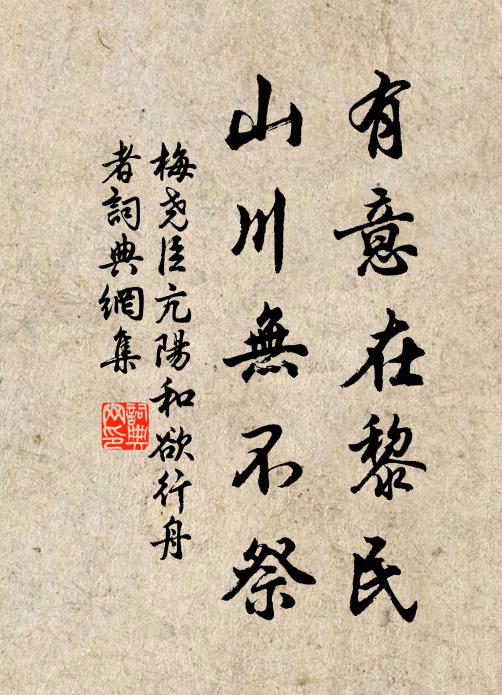 有意在黎民
山川無不祭
梅堯臣亢陽和欲行舟
者詞典網集
詞典网印